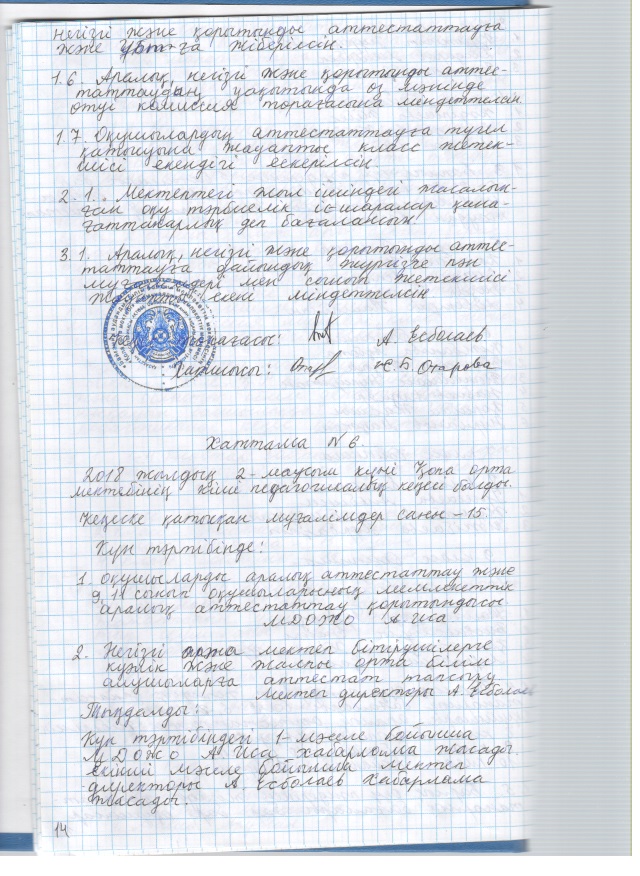 негізгі және қорытынды аттестаттауға
және ҰБТ-ға жіберілсін.
1.6. Аралық, негізгі және қорытынды аттес-
таттаудың уақытында өз мәнінде
өтуі комиссия торағасына міндеттелсін.
1.7. Оқушылардың аттестаттауға түгел
қатысуына жауапты класс жетек-
шісі екендігі ескерілсін
2.1. Мектептегі жыл ішіндегі жасалын-
ған оқу тәрбиелік іс-шаралар қана-
ғаттанарлық деп бағалансын
3.1. Аралық, негізгі және қорытынды аттес-
таттауға дайындық жүргізуге пән
мұғалімдері мен сынып жетекшісі
екені міндеттелсін
торағасы: А. Есболаев
Хатшысы: Ж.Б. Отарова
Хаттама №6.
2018 жылдың 2-маусым күні Қопа орта
мектебінің кіші педагогикалық кеңесі болды.
Кеңеске қатысқан мұғалімдер саны – 15.
Күн тәртібінде:
1. Оқушыларды аралық аттестаттау және
9, 11 сынып оқушыларының мемлекеттік
аралық аттестаттау қорытындысы.
МДОЖО А Иса
2. Негізгі орта мектеп бітірушілерге
куәлік және жалпы орта білім
алушыларға аттестат тапсыру
Мектеп директоры А. Есболаев
Тыңдалды:
Күн тәртібіндегі 1-мәселе бойынша
МДОЖО А Иса хабарлама жасады
екінші мәселе бойынша мектеп
директоры А. Есболаев хабарлама
жасады.
14